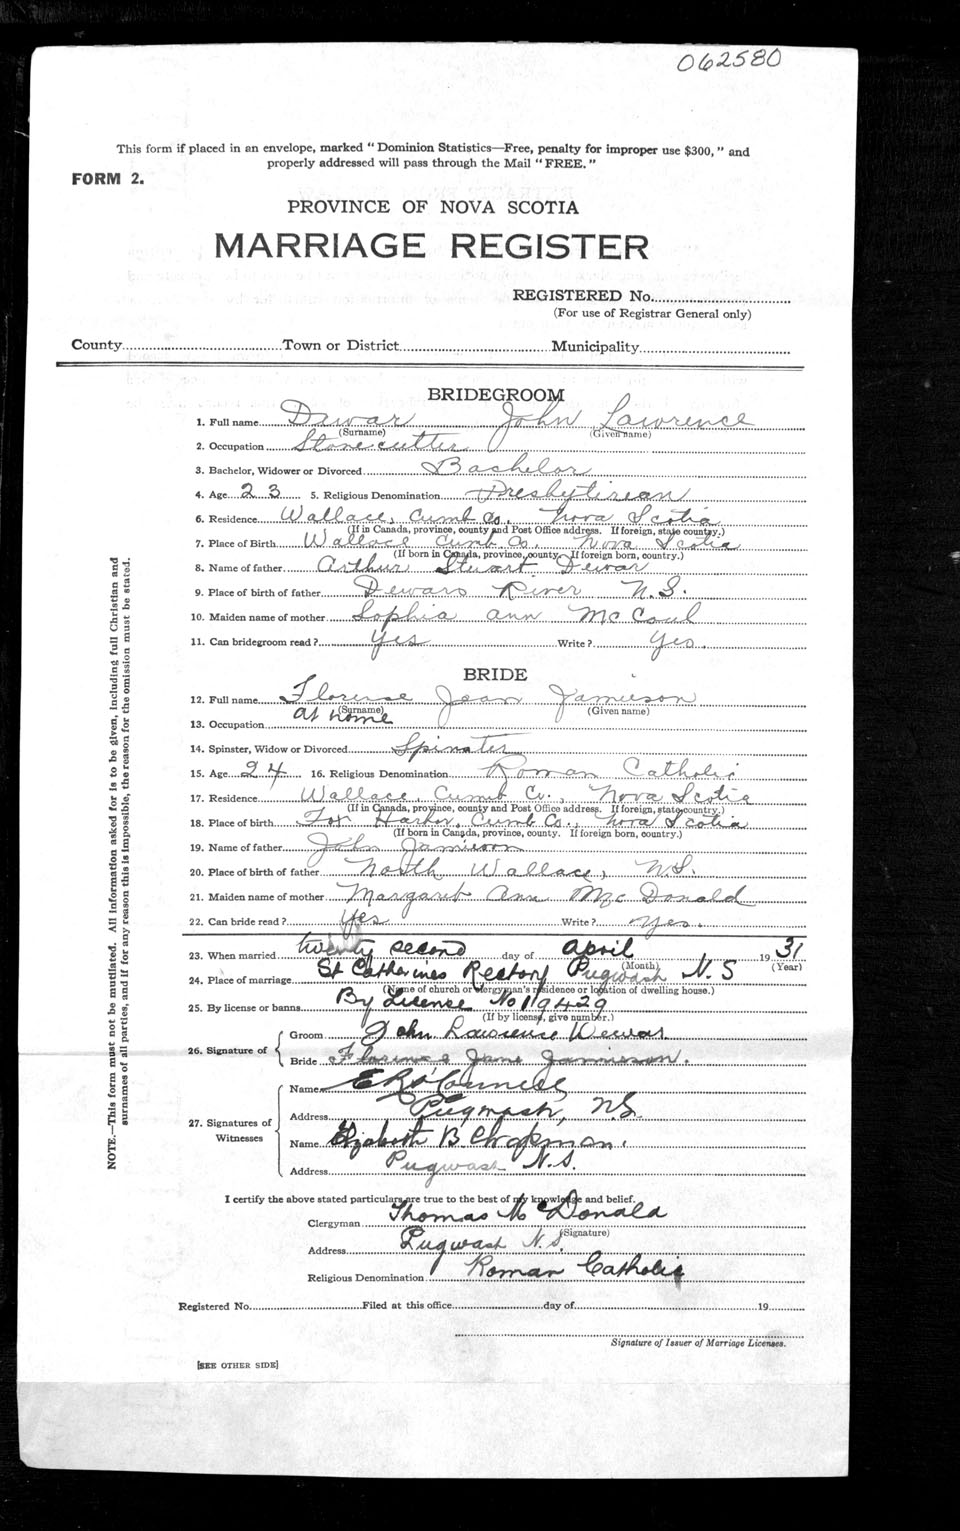 062580
This form if placed in an envelope, marked "Dominion Statistics—Free, penalty for improper use $300," and
properly addressed will pass through the Mail "FREE."
FORM 2.
PROVINCE OF NOVA SCOTIA
MARRIAGE REGISTER
REGISTERED No.
(For use of Registrar General only)
County Town or District Municipality
BRIDEGROOM
1. Full name Dewar John Lawrence
(Surname) (Given name)
2. Occupation Stonecutter
3. Bachelor, Widower or Divorced Bachelor
4. Age 23 5. Religious Denomination Presbytirean
6. Residence Wallace, Cumb Co., Nova Scotia
(If in Canada, province, county and Post Office address. If foreign, state country.)
7. Place of Birth Wallace Cumb. Co., Nova Scotia
(If born in Canada, province, county. If foreign born, country.)
8. Name of father Arthur Stuart Dewar
9. Place of birth of father Dewars River N.S.
10. Maiden name of mother Sophia Ann McCoul
11. Can bridegroom read? Yes Write? Yes.
BRIDE
12. Full name Florense Jean Jamieson
(Surname) (Given name)
13. Occupation at home
14. Spinster, Widow or Divorced Spinster
15. Age 24 16. Religious Denomination Roman Catholic
17. Residence Wallace, Cumb Co., Nova Scotia
(If in Canada, province, county and Post Office address. If foreign, state country.)
18. Place of birth Fox Harbor, Cumb Co., Nova Scotia
(If born in Canada, province, county. If foreign born, country.)
19. Name of father John Jamieson
20. Place of birth of father North Wallace, N.S.
21. Maiden name of mother Margaret Ann McDonald
22. Can bride read? Yes Write? Yes.
23. When married twenty second day of april 1931
(Month) (Year)
24. Place of marriage St Catherines Rectory Pugwash N.S
(Name of church or clergyman's residence or location of dwelling house.)
25. By license or banns By License No 119429
(If by license, give number.)
26. Signature of
Groom John Lawrence Dewar.
Bride Florence Jane Jamieson.
27. Signatures of Witnesses
Name
Address Pugwash, NS.
Name Elizabeth B. Chapman.
Address Pugwash N.S.
I certify the above stated particulars are true to the best of my knowledge and belief.
Clergyman Thomas McDonald
(Signature)
Address Pugwash N.S.
Religious Denomination Roman Catholic
Registered No. Filed at this office day of 19
Signature of Issuer of Marriage Licenses.
[SEE OTHER SIDE]
NOTE.—This form must not be mutilated. All information asked for is to be given, including full Christian and
surnames of all parties, and if for any reason this is impossible, the reason for the omission must be stated.